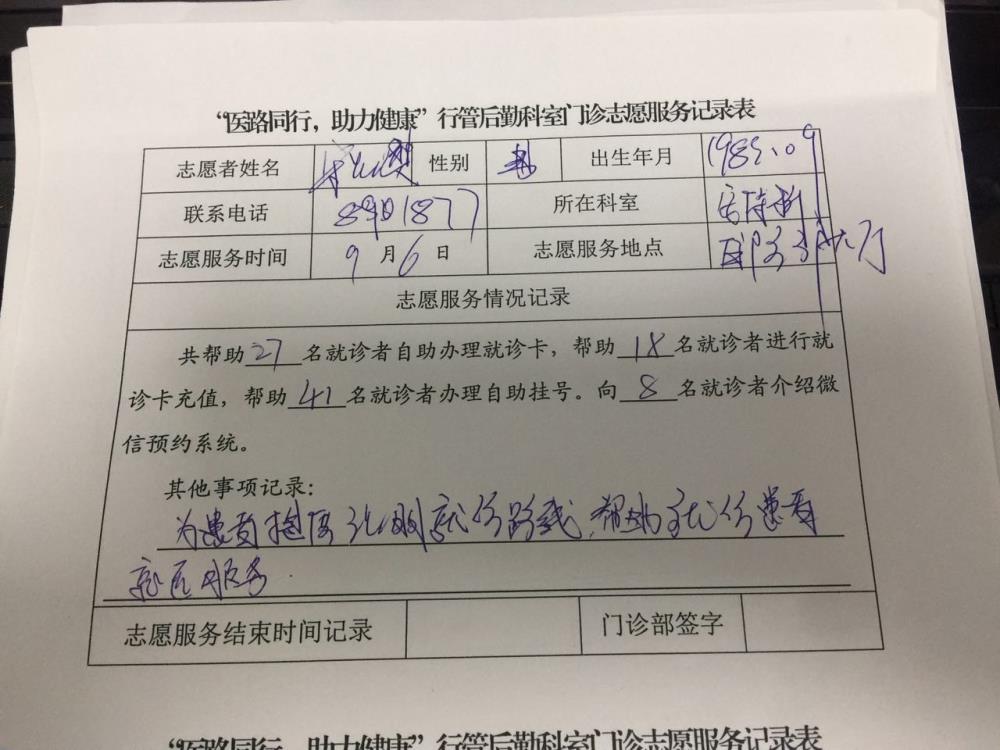 “医路同行，助力健康”行管后勤科室门诊志愿服务记录表
志愿者姓名 性别 出生年月 1989.09
联系电话 所在科室
志愿服务时间 9月6日 志愿服务地点
志愿服务情况记录
共帮助27名就诊者自助办理就诊卡，帮助18名就诊者进行就
诊卡充值，帮助41名就诊者办理自助挂号。向8名就诊者介绍微
信预约系统。
其他事项记录：
为患者指导 就诊路线，帮助 患者
就医服务
志愿服务结束时间记录 门诊部签字
“医路同行，助力健康”行管后勤科室门诊志愿服务记录表